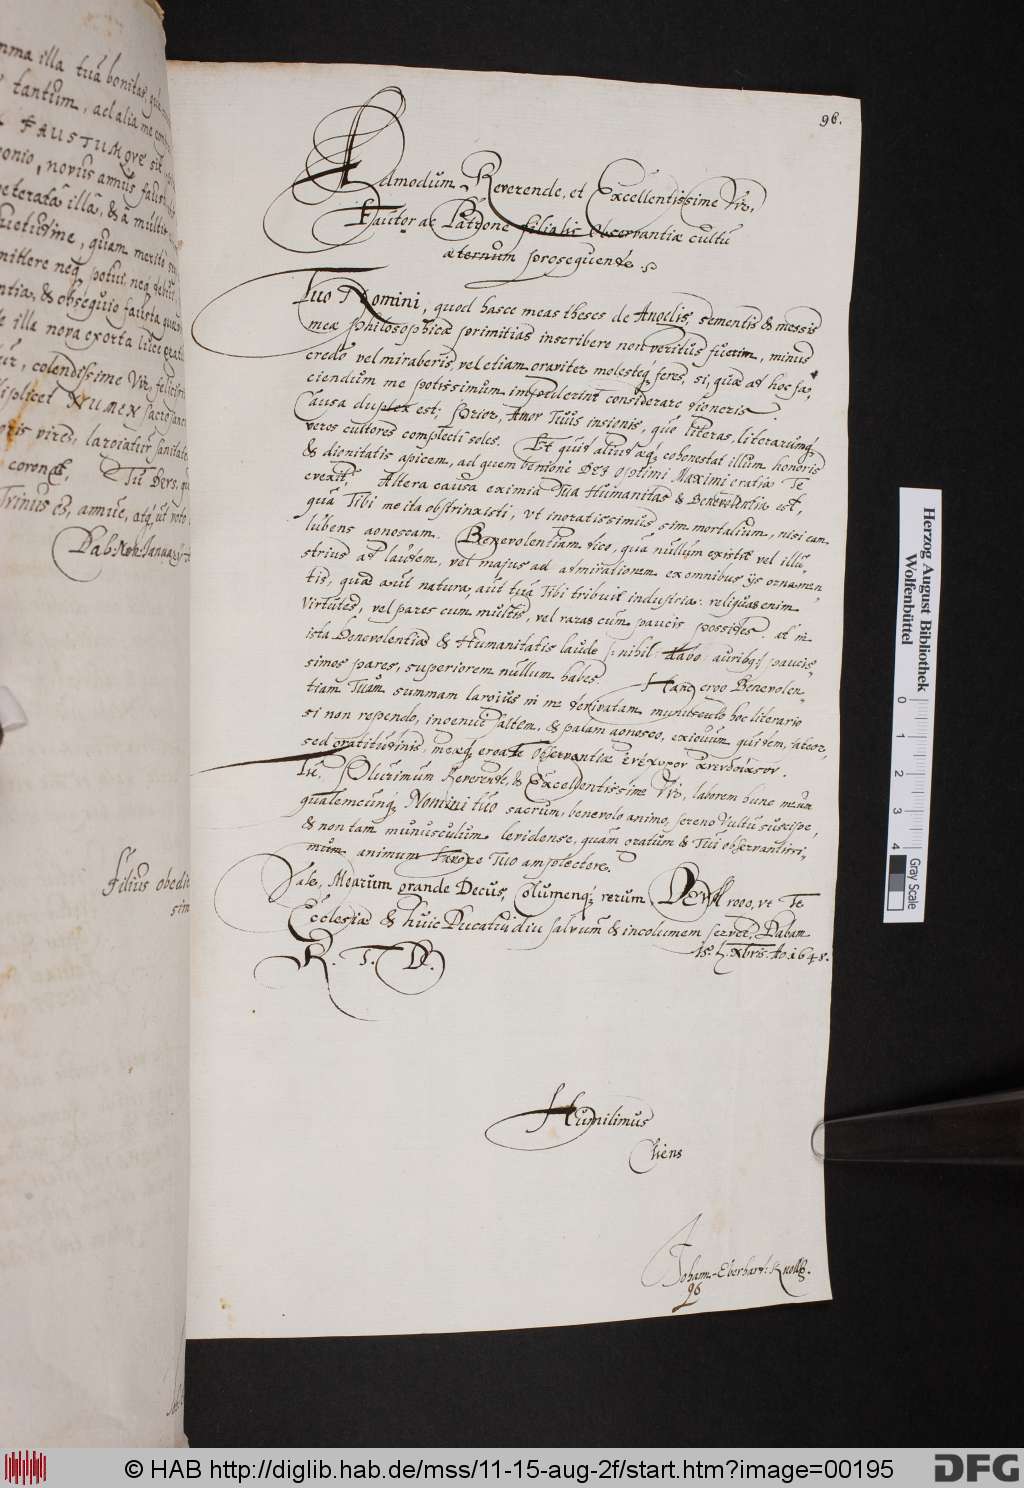 96.
Admodum Reverende, et Excellentissime Vir,
Fautor ac Patrone filialis observantiæ cultu
æternum prosequende.
Tuo Nomini, quod hasce meas theses de Angelis, sementis & messis
meæ philosophicæ primitias inscribere non veritus fuerim, minus
credo vel miraberis, vel etiam graviter molesteq́ feres, si, quæ ad hoc fa-
ciendum me potissimum impulerint considerare digneris.
Causa duplex est; Prior, Amor Tuus insignis, quo literas, literarumq́
veros cultores complecti soles. Et quid alius æq́ cohonestat illum honoris
& dignitatis apicem, ad quem benigne DEI Optimi Maximi gratia Te
erexit? Altera causa eximia Tua Humanitas & Benevolentia est,
quâ Tibi me ita obstrinxisti, ut ingratissimus sim mortalium, nisi eam
lubens agnoscam. Benevolentiam dico, quâ nullum existit vel illu-
strius ad laudem, vel majus ad admirationem ex omnibus ijs ornamen-
tis, quæ aut natura, aut tua Tibi tribuit industria: reliquas enim
Virtutes, vel pares cum multis, vel raras cum paucis possides: at in
ista Benevolentiæ & Humanitatis laude (: nihil dabo auribq́:) paucis-
simos pares, superiorem nullum habes. Hanc ergo Benevolen-
tiam Tuam summam largius in me derivatam munusculo hoc literario
si non rependo, ingenue saltem, & palam agnosco, exiguum quidem, fateor,
sed gratitudinis, meæq́ erga te observantiæ ἐνέχυρον ἀνενδοίαστον.
Tu, Plurimum Reverende, & Excellentissime Vir, laborem hunc meum
qualemcunq́ Nomini tuo sacrum, benevolo animo, sereno vultu suscipe,
& non tam munusculum levidense, quàm gratum & Tui observantissi-
mum animum favore Tuo amplectere.
Vale, Mearum grande Decus, Columenq́ rerum, DEUM rogo, ut Te
Ecclesiæ & huic Ducatui diu salvum & incolumem servet. Dabam
Xbris. Ao. 1648.
R. T. D.
Humilimus
Cliens
Joham-Eberhard: Knoll
96
tuâ bonitas
tantum, ad alia me
FAUSTUMQVE sit
novus annus
illâ, & â multis
quam merito
potui, neq́ debui
& obsequio fausta
illa nova exorta
colendissime Vir,
NUMEN
vires, largiatur sanitat
coronet. Tu
Trinus es, annue, atq́, ut voto
Dab.
filius obedi
sim
Herzog August Bibliothek
Wolfenbüttel
0
1
2
3
4
Gray Scale
© HAB http://diglib.hab.de/mss/11-15-aug-2f/start.htm?image=00195
DFG